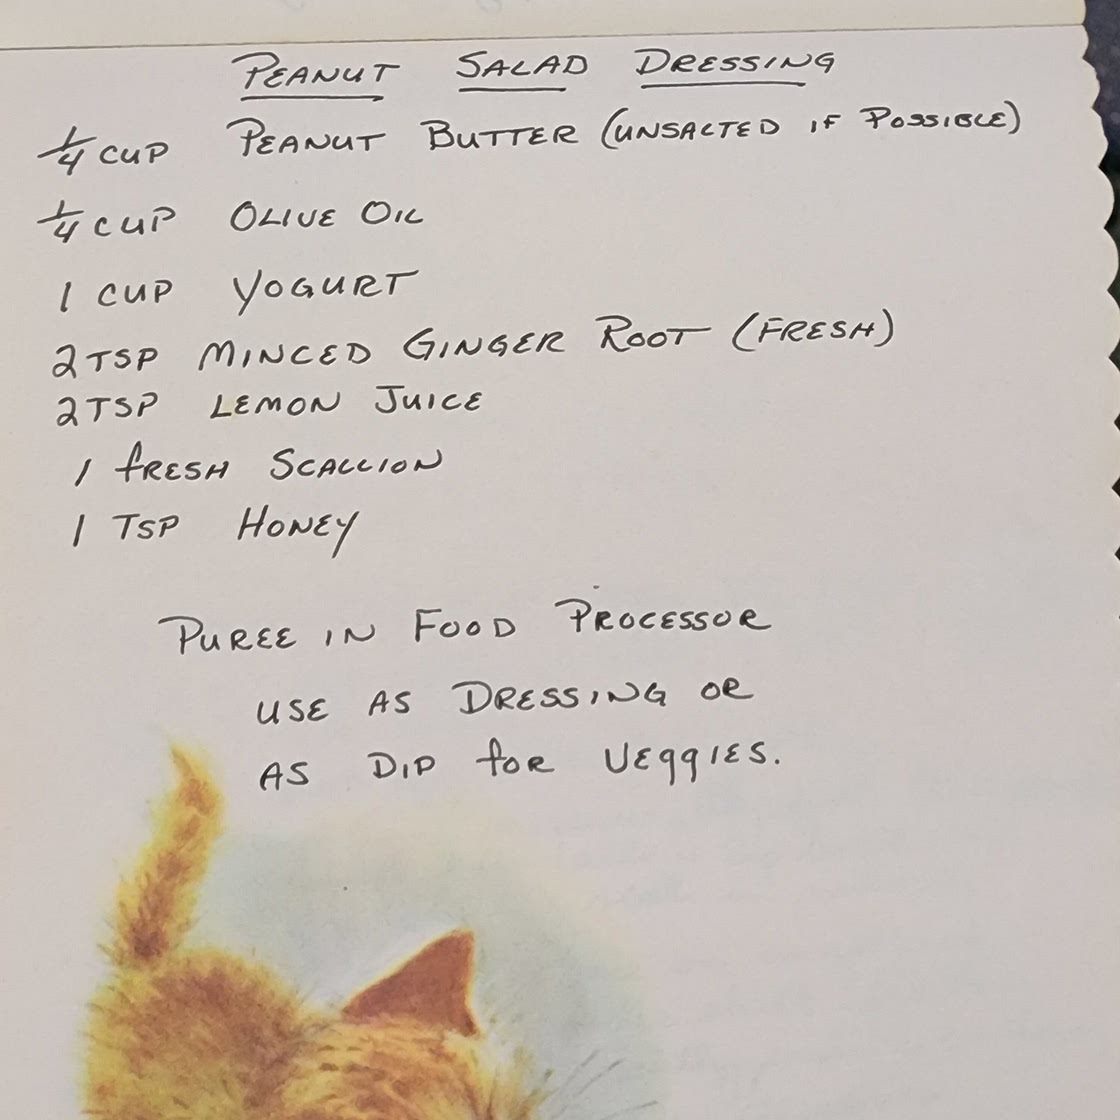 PEANUT SALAD DRESSING
1/4 CUP PEANUT BUTTER (UNSALTED IF POSSIBLE)
1/4 CUP OLIVE OIL
1 CUP YOGURT
2 TSP MINCED GINGER ROOT (FRESH)
2 TSP LEMON JUICE
1 FRESH SCALLION
1 TSP HONEY
PUREE IN FOOD PROCESSOR
USE AS DRESSING OR
AS DIP FOR VEGGIES.